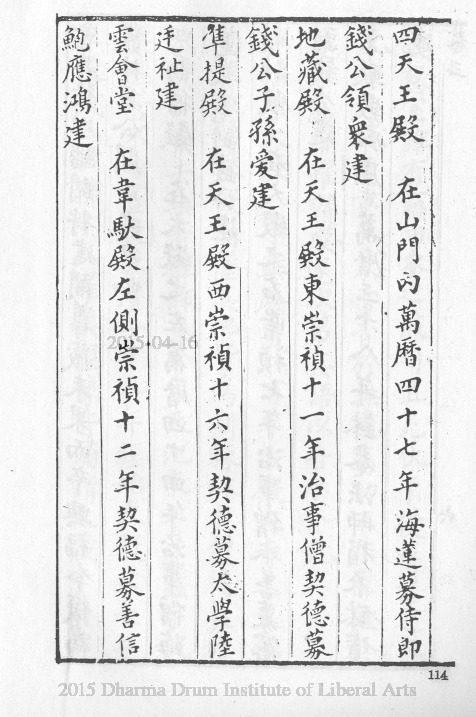 四天王殿 在山門内萬曆四十七年海蓮募侍郎
錢公領衆建
地藏殿 在天王殿東崇禎十一年治事僧契德募
錢公子孫愛建
準提殿 在天王殿西崇禎十六年契德募太學陸
廷祉建
雲會堂 在韋馱殿左側崇禎十二年契德募善信
鮑應鴻建
114
2015-04-16
2015 Dharma Drum Institute of Liberal Arts